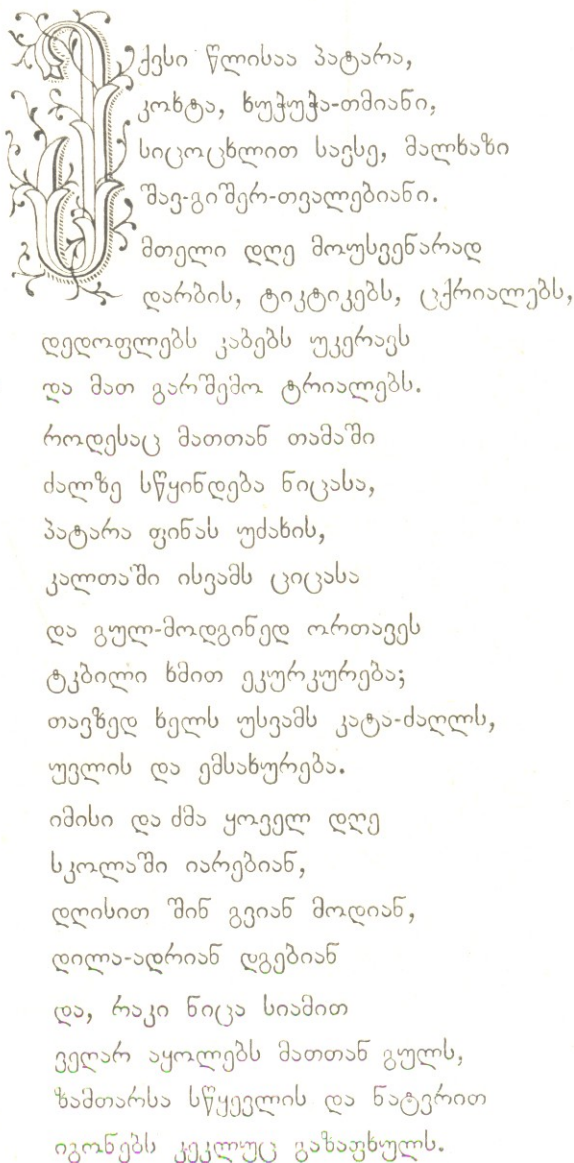 ექვსი წლისაა პატარა,
კოხტა, ხუჭუჭა-თმიანი,
სიცოცხლით სავსე, მალხაზი
შავ-გიშერ-თვალებიანი.
მთელი დღე მოუსვენარად
დარბის, ტიკტიკებს, ცქრიალებს,
დედოფლებს კაბებს უკერავს
და მათ გარშემო ტრიალებს.
როდესაც მათთან თამაში
ძალზე სწყინდება ნიცასა,
პატარა ფინას უძახის,
კალთაში ისვამს ციცასა
და გულ-მოდგინედ ორთავეს
ტკბილი ხმით ეკურკურება;
თავზედ ხელს უსვამს კატა-ძაღლს,
უვლის და ემსახურება.
იმისი და ძმა ყოველ დღე
სკოლაში იარებიან,
დღისით შინ გვიან მოდიან,
დილა-ადრიან დგებიან
და, რაკი ნიცა სიამით
ვეღარ აყოლებს მათთან გულს,
ზამთარსა სწყევლის და ნატვრით
იგონებს კეკლუც გაზაფხულს.